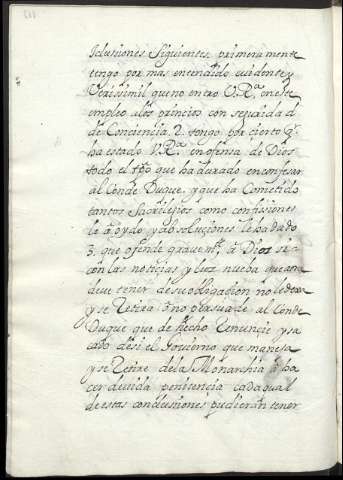 clusiones siguientes, primeramente
tengo por mas entendido evidente y
verissimil que no entro V. Rª. en este
empleo a los principios con seguridad
de Conciencia. 2. tengo por cierto q̃
ha estado V. Rª. en ofensa de Dios
todo el tpo que ha durado en confesar
al Conde Duque, y que ha Cometido
tantos Sacrilejios como confisiones
le a oydo y absoluciones le ha dado
3. que ofende gravemte. a Dios si
con las noticias y luz nueba que aora
deve tener de su obligacion no le dexa
y se retira ò no persuade al Conde
Duque que de hecho renuncie y sa
cado desi el govierno que maneja
y se retire de la Monarchia à ha
cer devida penitencia cada qual
de estas conclusiones pudieran tener